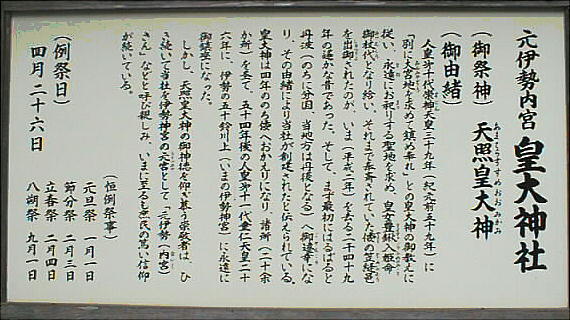 元伊勢内宮 皇大神社
(御祭神) 天照皇大神
あまてらすすめおおみかみ
(御由緒)
人皇第十代崇神天皇三十九年(紀元前五十九年)に
「別に大宮地を求めて鎮め奉れ」との皇大神の御教えに
従い、永遠にお祀りする聖地を求め、皇女豊鍬入姫命
御杖代となり給い、それまで奉斎されていた倭の笠縫邑
を出御されたのが、いま(平成二年)を去る二千四十九
年の遥かな昔であった。そして、まず最初にはるばると
丹波(のちに分国、当地方は丹後となる)へ御遷幸にな
り、その由緒により当社が創建されたと伝えられている。
皇大神は四年ののち倭へおかえりになり、諸所(二十余
か所)を経て、五十四年後の人皇第十一代垂仁天皇二十
六年に、伊勢の五十鈴川上(いまの伊勢神宮)に永遠に
御鎮座になった。
しかし、天照皇大神の御神徳を仰ぎ慕う崇敬者は、ひ
き続いて当社を伊勢神宮の元宮として「元伊勢(内宮)
さん」などと呼び親しみ、いまに至るも庶民の篤い信仰
が続いている。
(恒例祭事)
元旦祭 一月一日
節分祭 二月三日
立春祭 二月四日
八朔祭 九月一日
(例祭日)
四月二十六日